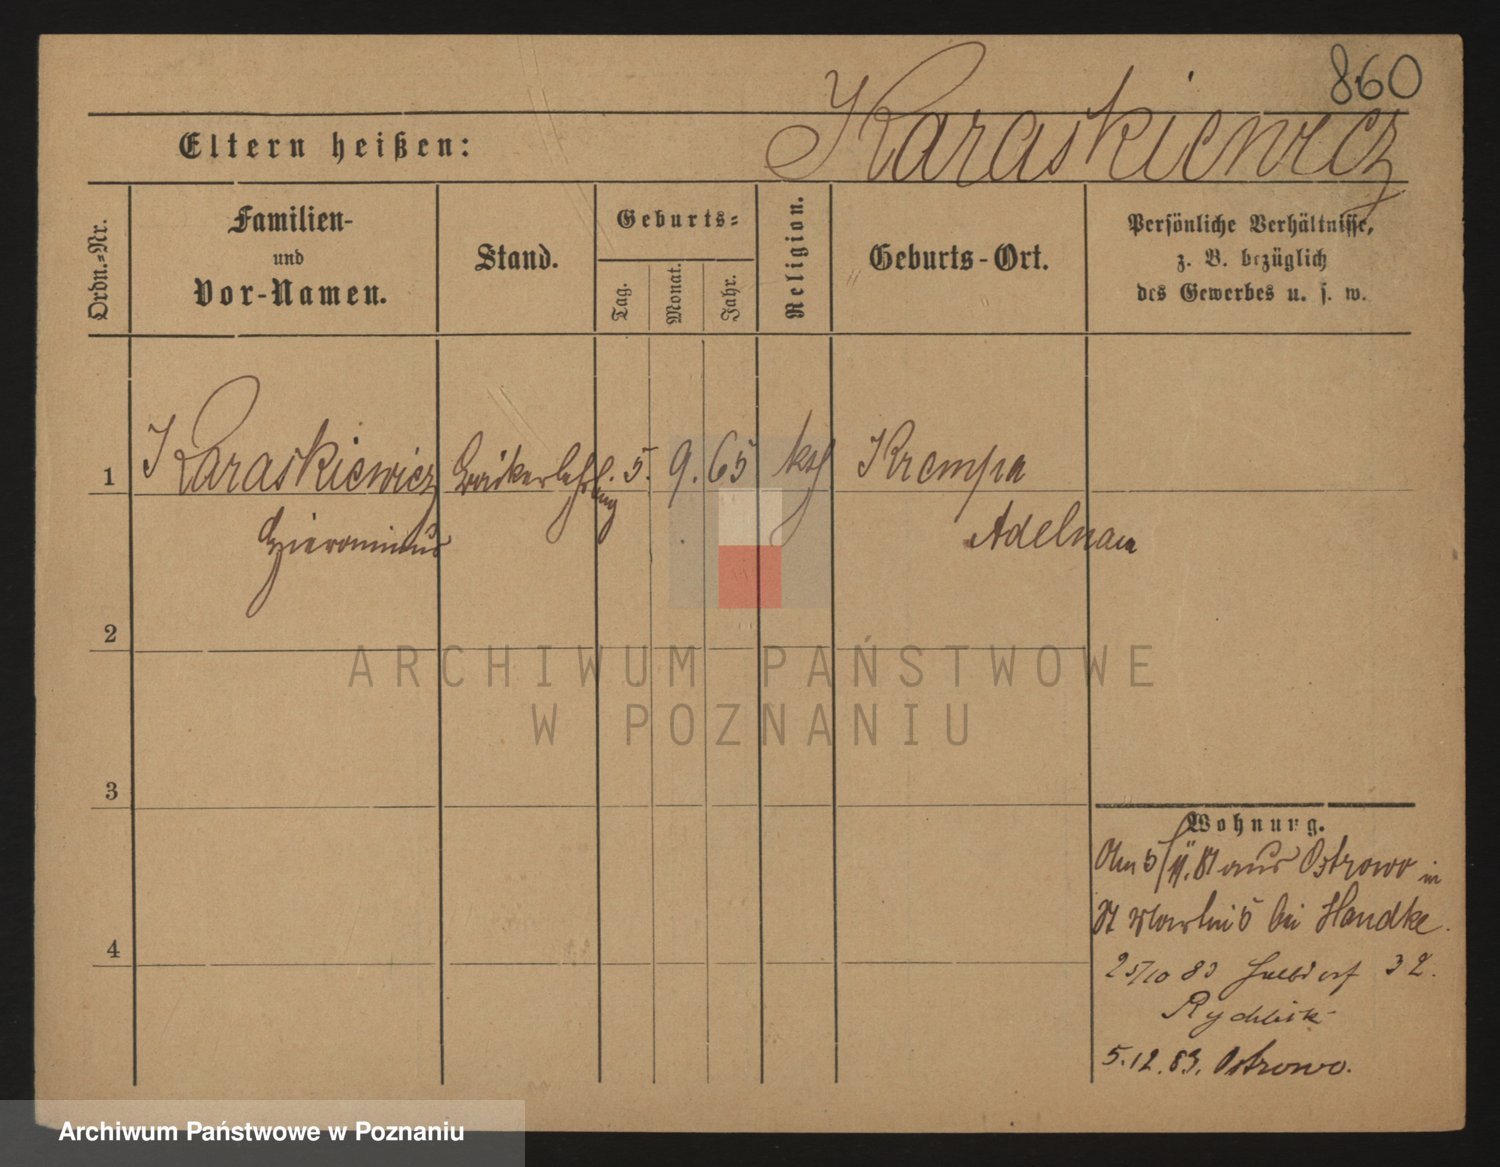 860
Karaskiewicz
Eltern heißen:
Ordn.-Nr.
Familien-
und
Vor-Namen.
Stand.
Geburts-
Tag.
Monat.
Jahr.
Religion.
Geburts-Ort.
Persönliche Verhältnisse,
z. B. bezüglich
des Gewerbes u. s. w.
1 Karaskiewicz Bäckerlehrling 5. 9. 65 kth Krempa
Hieronimus Adelnau
2
3
4
ARCHIWUM PAŃSTWOWE
W POZNANIU
Wohnung.
aus Ostrowo in
St Martin 5 bei Handke.
25/10 83 Halbdorf 32.
Rychlick
5.12.83. Ostrowo.
Archiwum Państwowe w Poznaniu